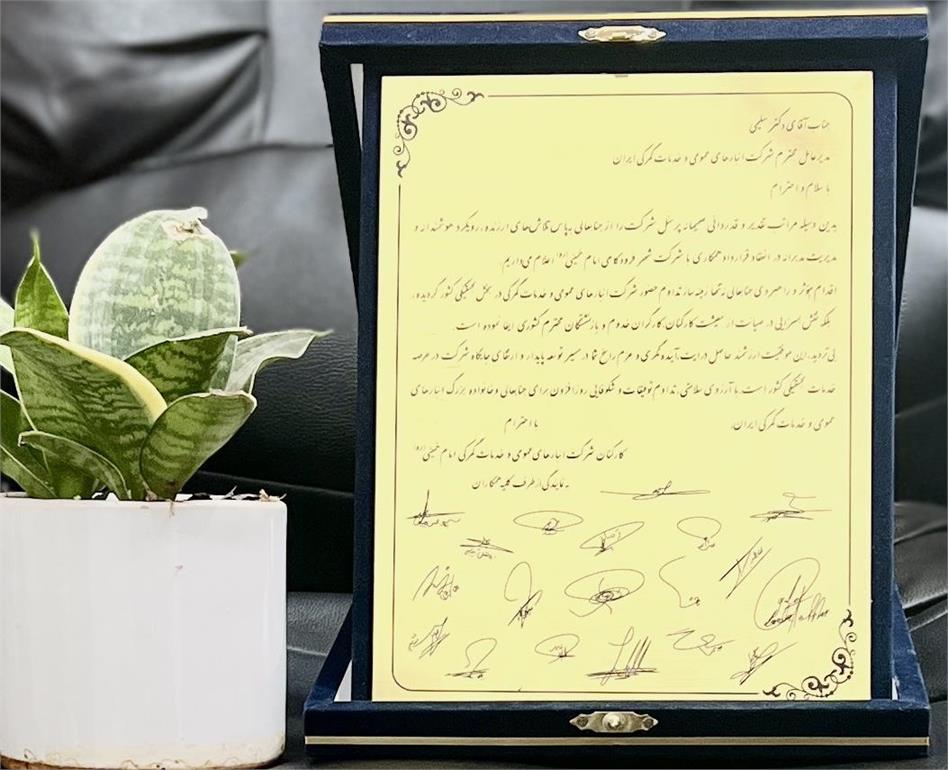 جناب آقای دکتر سلیمی
مدیرعامل محترم شرکت انبارهای عمومی و خدمات گمرکی ایران
با سلام و احترام
بدین وسیله مراتب تقدیر و قدردانی صمیمانه پرسنل شرکت را از جنابعالی به‌پاس تلاش‌های ارزنده، رویکرد هوشمندانه و
مدیریت مدبرانه در انعقاد قرارداد همکاری با شرکت شهر فرودگاهی امام خمینی(ره) اعلام می‌داریم.
اقدام مؤثر و راهبردی جنابعالی نه‌تنها زمینه‌ساز تداوم حضور شرکت انبارهای عمومی و خدمات گمرکی در بخش لجستیکی کشور گردیده،
بلکه نقش بسزایی در صیانت از معیشت کارکنان، کارگران خدوم و بازنشستگان محترم کشوری ایفا نموده است.
بی‌تردید، این موفقیت ارزشمند حاصل درایت، آینده‌نگری و عزم راسخ شما در مسیر توسعه پایدار و ارتقای جایگاه شرکت در عرصه
خدمات لجستیکی کشور است. با آرزوی سلامتی، تداوم توفیقات و شکوفایی روزافزون برای جنابعالی و خانواده بزرگ انبارهای
عمومی و خدمات گمرکی ایران.
با احترام
کارکنان شرکت انبارهای عمومی و خدمات گمرکی امام خمینی(ره)
به نمایندگی از طرف کلیه همکاران